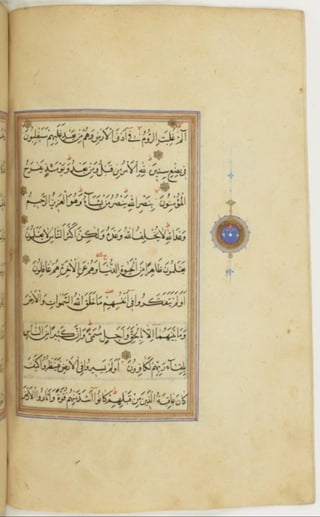 الٓمٓ غُلِبَتِ الرُّومُ فِى أَدْنَى الْأَرْضِ وَهُمْ مِنْ بَعْدِ غَلَبِهِمْ سَيَغْلِبُونَ
فِى بِضْعِ سِنِينَ لِلَّهِ الْأَمْرُ مِنْ قَبْلُ وَمِنْ بَعْدُ وَيَوْمَئِذٍ يَفْرَحُ
الْمُؤْمِنُونَ بِنَصْرِ اللَّهِ يَنْصُرُ مَنْ يَشَآءُ وَهُوَ الْعَزِيزُ الرَّحِيمُ
وَعْدَ اللَّهِ لَا يُخْلِفُ اللَّهُ وَعْدَهُ وَلَكِنَّ أَكْثَرَ النَّاسِ لَا يَعْلَمُونَ
يَعْلَمُونَ ظَاهِرًا مِنَ الْحَيَوةِ الدُّنْيَا وَهُمْ عَنِ الْآخِرَةِ هُمْ غَافِلُونَ
أَوَلَمْ يَتَفَكَّرُوا فِى أَنْفُسِهِمْ مَا خَلَقَ اللَّهُ السَّمَوَاتِ وَالْأَرْضَ
وَمَا بَيْنَهُمَا إِلَّا بِالْحَقِّ وَأَجَلٍ مُسَمًّى وَإِنَّ كَثِيرًا مِنَ النَّاسِ
بِلِقَآءِ رَبِّهِمْ لَكَافِرُونَ أَوَلَمْ يَسِيرُوا فِى الْأَرْضِ فَيَنْظُرُوا كَيْفَ
كَانَ عَاقِبَةُ الَّذِينَ مِنْ قَبْلِهِمْ كَانُوا أَشَدَّ مِنْهُمْ قُوَّةً وَأَثَارُوا الْأَرْضَ